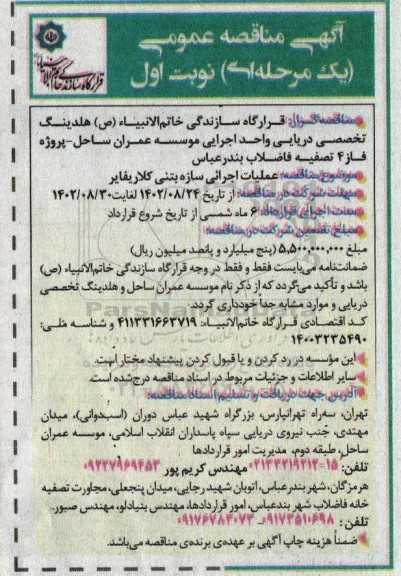 آگهی مناقصه عمومی
(یک مرحله‌ای) نوبت اول
قرارگاه سازندگی خاتم الانبیاء
مناقصه‌گزار: قرارگاه سازندگی خاتم‌الانبیاء (ص) هلدینگ
تخصصی دریایی واحد اجرایی موسسه عمران ساحل-پروژه
فاز ۴ تصفیه فاضلاب بندرعباس
موضوع مناقصه: عملیات اجرائی سازه بتنی کلاریفایر
مهلت شرکت در مناقصه: از تاریخ ۱۴۰۲/۰۸/۲۴ لغایت ۱۴۰۲/۰۸/۳۰
مدت اجرایی قرارداد: ۶ ماه شمسی از تاریخ شروع قرارداد
مبلغ تضمین شرکت در مناقصه:
مبلغ ۵,۵۰۰,۰۰۰,۰۰۰ (پنج میلیارد و پانصد میلیون ریال)
ضمانت‌نامه می‌بایست فقط و فقط در وجه قرارگاه سازندگی خاتم‌الانبیاء (ص)
باشد و تأکید می‌گردد که از ذکر نام موسسه عمران ساحل و هلدینگ تخصصی
دریایی و موارد مشابه جداً خودداری گردد.
کد اقتصادی قرارگاه خاتم‌الانبیاء: ۴۱۱۳۳۱۶۶۳۷۱۹ و شناسه ملی:
۱۴۰۰۳۲۳۵۴۹۰
این مؤسسه در رد کردن و یا قبول کردن پیشنهاد مختار است.
سایر اطلاعات و جزئیات مربوط در اسناد مناقصه درج‌شده است.
آدرس جهت دریافت و تسلیم اسناد مناقصه:
تهران، سه‌راه تهرانپارس، بزرگراه شهید عباس دوران (اسب‌دوانی)، میدان
مهتدی، جنب نیروی دریایی سپاه پاسداران انقلاب اسلامی، موسسه عمران
ساحل، طبقه دوم، مدیریت امور قراردادها
تلفن: ۱۵-۰۲۱۳۳۲۱۹۲۱۲ مهندس کریم پور ۰۹۲۲۷۹۶۹۴۵۳
هرمزگان، شهر بندرعباس، اتوبان شهید رجایی، میدان پنجعلی، مجاورت تصفیه
خانه فاضلاب شهر بندرعباس، امور قراردادها، مهندس بنیادلو، مهندس صبور.
تلفن: ۰۹۱۷۳۵۱۰۶۹۸ - ۰۹۱۷۶۷۸۴۰۷۳
ضمناً هزینه چاپ آگهی بر عهده‌ی برنده‌ی مناقصه می‌باشد.